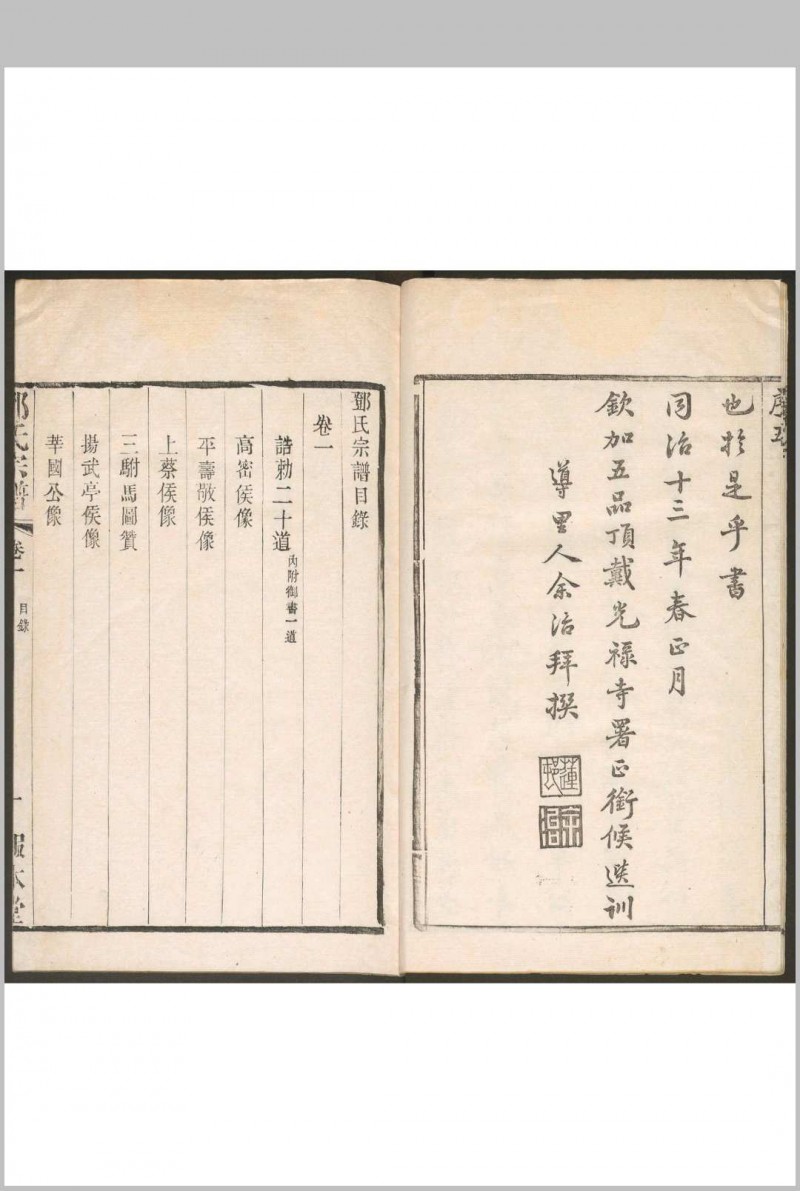 也於是乎書
同治十三年春正月
欽加五品頂戴光祿寺署正銜候選訓
導里人余治拜撰
鄧氏宗譜目錄
卷一
誥勅二十道內附御書一道
高密侯像
平壽敬侯像
上蔡侯像
三駙馬圖贊
揚武亭侯像
莘國公像
鄧氏宗譜
卷一
目錄
一
報本堂